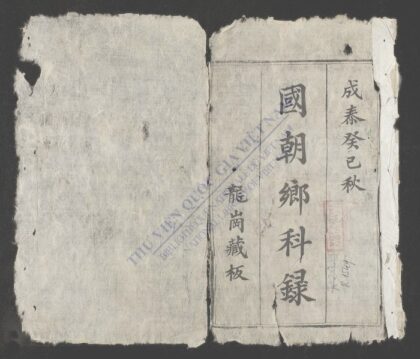 成泰癸巳秋
國朝鄉科錄
龍崗藏板
THƯ VIỆN QUỐC GIA VIỆT NAM